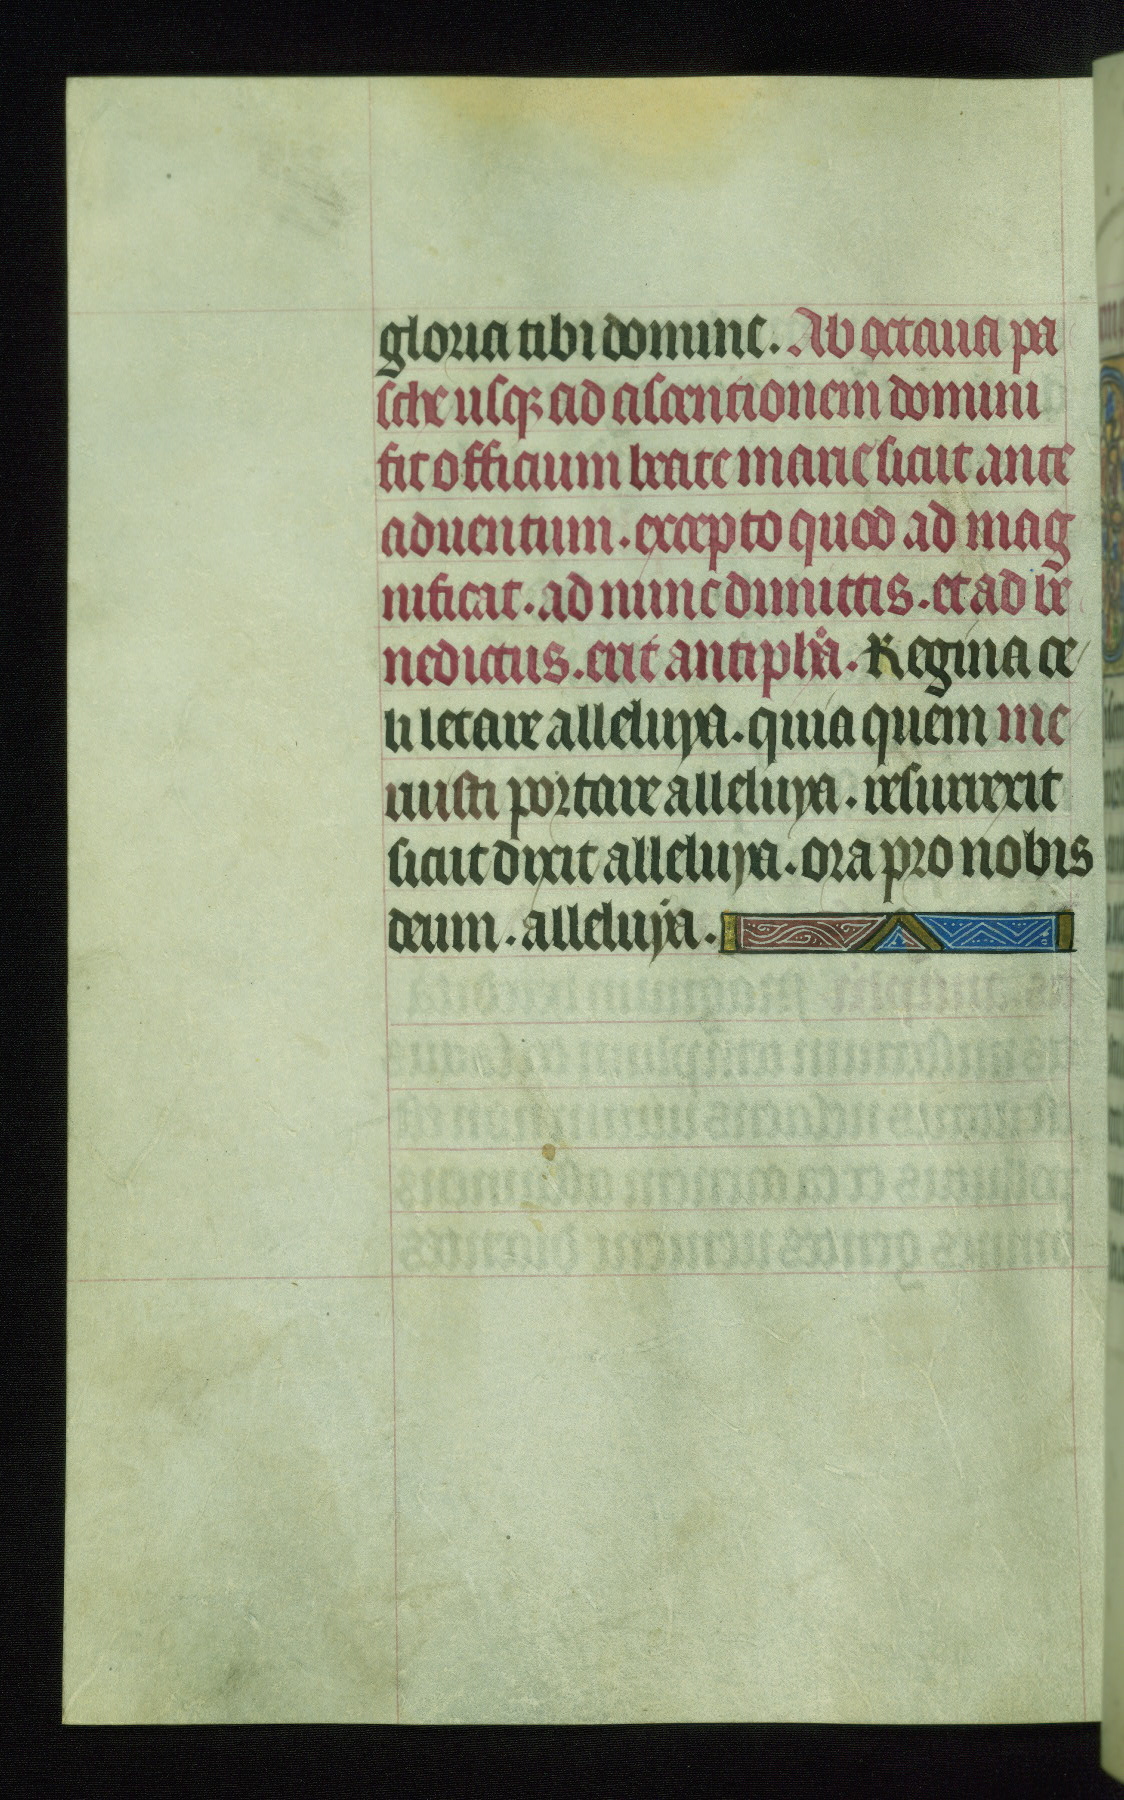 gloria tibi domine. Ab octaua pa
sche usqꝫ ad ascentionem domini
fit officium beate marie sicut ante
aduentum. excepto quod ad mag
nificat. ad nunc dimittis. et ad be
nedictus. erit antipha. Regina ce
li letare alleluya. quia quem me
ruisti portare alleluya. resurrexit
sicut dixit alleluya. ora pro nobis
deum. alleluya.